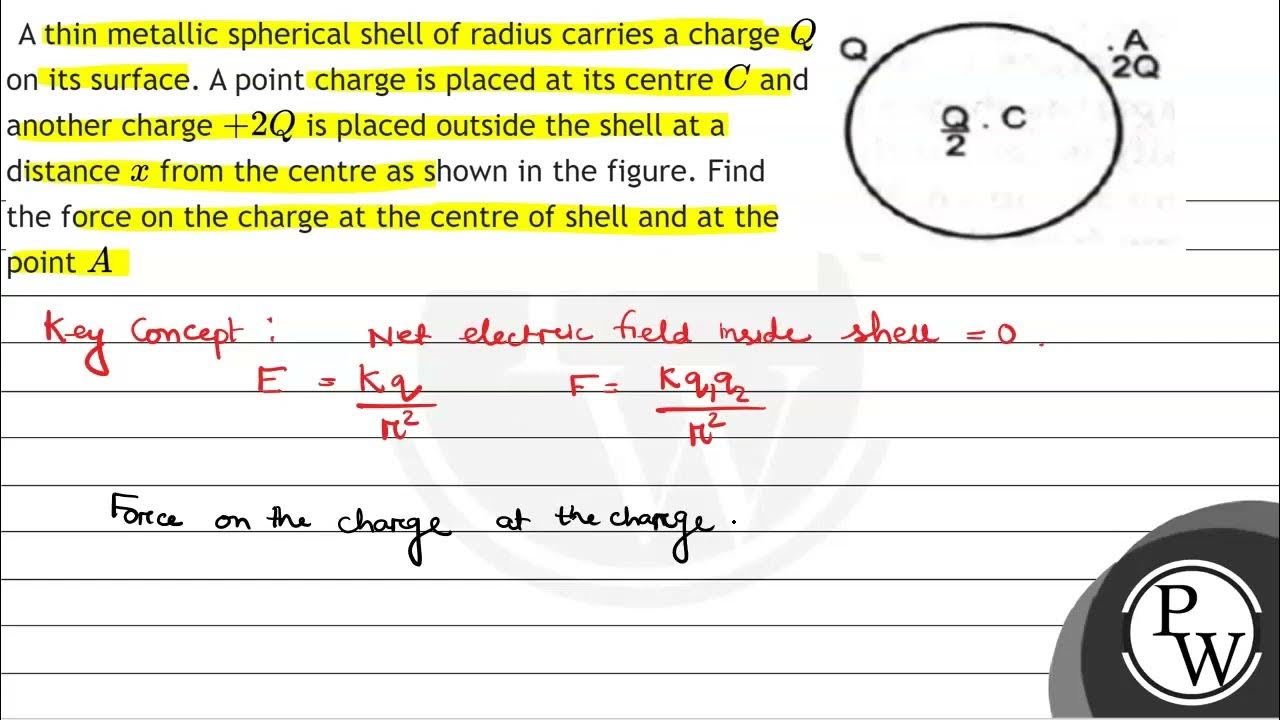 A thin metallic spherical shell of radius carries a charge Q
on its surface. A point charge is placed at its centre C and
another charge +2Q is placed outside the shell at a
distance x from the centre as shown in the figure. Find
the force on the charge at the centre of shell and at the
point A
Q
. A
2Q
Q/2 . C
Key Concept : Net electric field inside shell = 0 .
E = Kq/r² F = Kq₁q₂/r²
Force on the charge at the charge .
PW